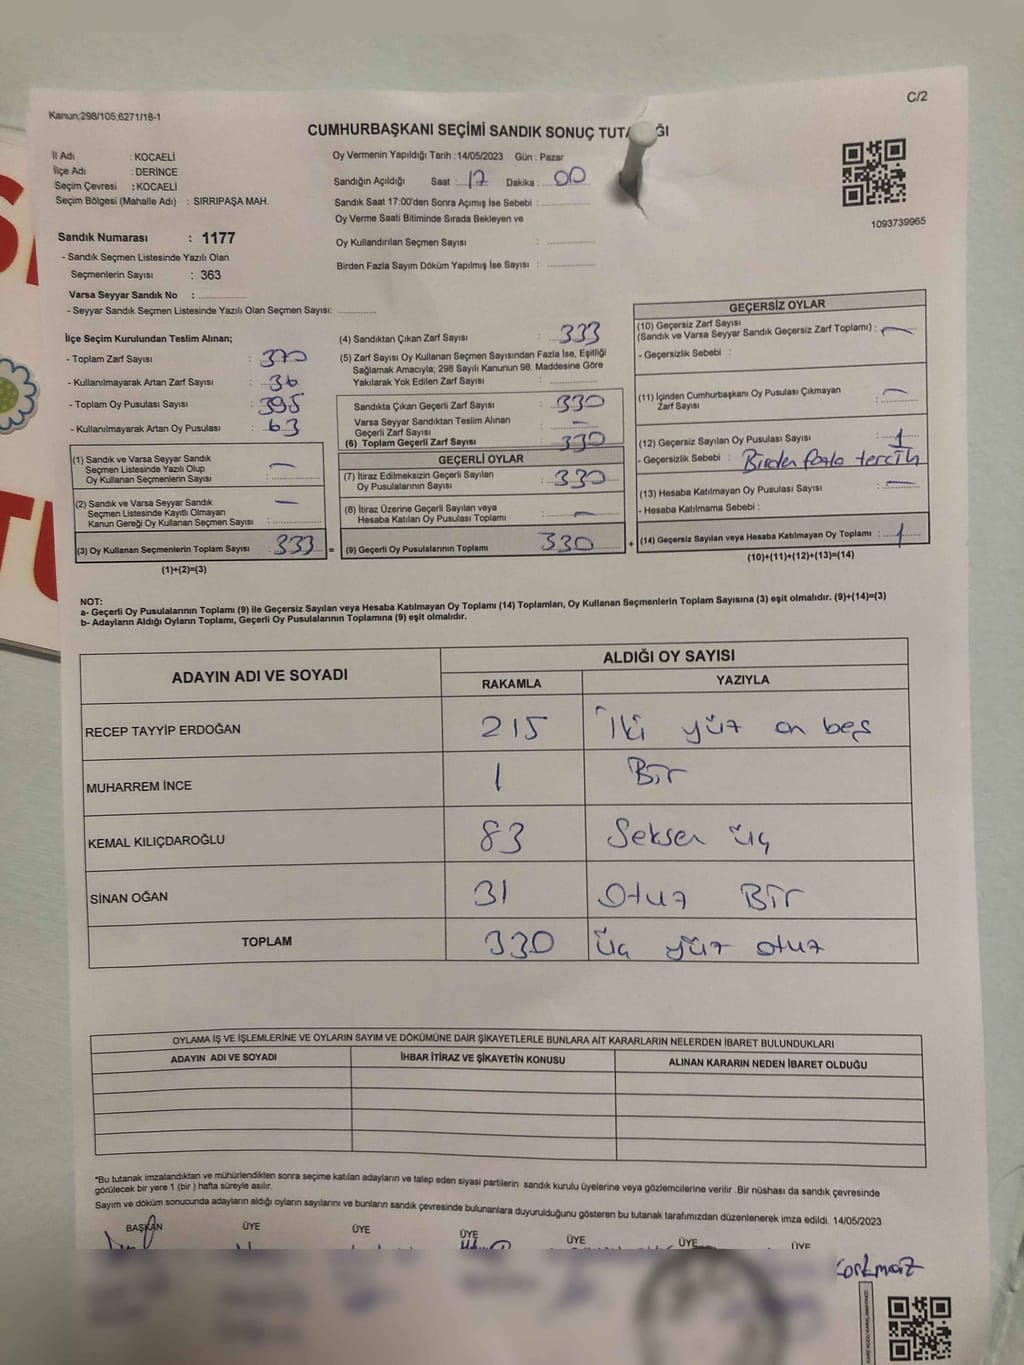 C/2
Kanun;298/105;6271/18-1
CUMHURBAŞKANI SEÇİMİ SANDIK SONUÇ TUTA ĞI
İl Adı : KOCAELİ
İlçe Adı : DERİNCE
Seçim Çevresi : KOCAELİ
Seçim Bölgesi (Mahalle Adı) : SIRRIPAŞA MAH.
Oy Vermenin Yapıldığı Tarih :14/05/2023 Gün : Pazar
Sandığın Açıldığı Saat : 17 Dakika : 00
Sandık Saat 17:00'den Sonra Açımış İse Sebebi :
Oy Verme Saati Bitiminde Sırada Bekleyen ve
Oy Kullandırılan Seçmen Sayısı :
Birden Fazla Sayım Döküm Yapılmış İse Sayısı :
1093739965
Sandık Numarası : 1177
- Sandık Seçmen Listesinde Yazılı Olan
Seçmenlerin Sayısı : 363
Varsa Seyyar Sandık No :
- Seyyar Sandık Seçmen Listesinde Yazılı Olan Seçmen Sayısı:
İlçe Seçim Kurulundan Teslim Alınan;
- Toplam Zarf Sayısı : 370
- Kullanılmayarak Artan Zarf Sayısı : 36
- Toplam Oy Pusulası Sayısı : 395
- Kullanılmayarak Artan Oy Pusulası : 63
(1) Sandık ve Varsa Seyyar Sandık
Seçmen Listesinde Yazılı Olup
Oy Kullanan Seçmenlerin Sayısı : —
(2) Sandık ve Varsa Seyyar Sandık
Seçmen Listesinde Kayıtlı Olmayan
Kanun Gereği Oy Kullanan Seçmen Sayısı : —
(3) Oy Kullanan Seçmenlerin Toplam Sayısı : 333 =
(1)+(2)=(3)
(4) Sandıktan Çıkan Zarf Sayısı : 333
(5) Zarf Sayısı Oy Kullanan Seçmen Sayısından Fazla İse, Eşitliği
Sağlamak Amacıyla; 298 Sayılı Kanunun 98. Maddesine Göre
Yakılarak Yok Edilen Zarf Sayısı :
Sandıkta Çıkan Geçerli Zarf Sayısı : 330
Varsa Seyyar Sandıktan Teslim Alınan
Geçerli Zarf Sayısı : —
(6) Toplam Geçerli Zarf Sayısı : 330
GEÇERLİ OYLAR
(7) İtiraz Edilmeksizin Geçerli Sayılan
Oy Pusulalarının Sayısı : 330
(8) İtiraz Üzerine Geçerli Sayılan veya
Hesaba Katılan Oy Pusulası Toplamı : —
(9) Geçerli Oy Pusulalarının Toplamı : 330 +
GEÇERSİZ OYLAR
(10) Geçersiz Zarf Sayısı
(Sandık ve Varsa Seyyar Sandık Geçersiz Zarf Toplamı) : —
- Geçersizlik Sebebi :
(11) İçinden Cumhurbaşkanı Oy Pusulası Çıkmayan
Zarf Sayısı : —
(12) Geçersiz Sayılan Oy Pusulası Sayısı : 1
- Geçersizlik Sebebi : Birden fazla tercih
(13) Hesaba Katılmayan Oy Pusulası Sayısı : —
- Hesaba Katılmama Sebebi :
(14) Geçersiz Sayılan veya Hesaba Katılmayan Oy Toplamı : 1
(10)+(11)+(12)+(13)=(14)
NOT:
a- Geçerli Oy Pusulalarının Toplamı (9) ile Geçersiz Sayılan veya Hesaba Katılmayan Oy Toplamı (14) Toplamları, Oy Kullanan Seçmenlerin Toplam Sayısına (3) eşit olmalıdır. (9)+(14)=(3)
b- Adayların Aldığı Oyların Toplamı, Geçerli Oy Pusulalarının Toplamına (9) eşit olmalıdır.
ADAYIN ADI VE SOYADI ALDIĞI OY SAYISI
RAKAMLA YAZIYLA
RECEP TAYYİP ERDOĞAN 215 İki yüz on beş
MUHARREM İNCE 1 Bir
KEMAL KILIÇDAROĞLU 83 Seksen üç
SİNAN OĞAN 31 Otuz Bir
TOPLAM 330 üç yüz otuz
OYLAMA İŞ VE İŞLEMLERİNE VE OYLARIN SAYIM VE DÖKÜMÜNE DAİR ŞİKAYETLERLE BUNLARA AİT KARARLARIN NELERDEN İBARET BULUNDUKLARI
ADAYIN ADI VE SOYADI İHBAR İTİRAZ VE ŞİKAYETİN KONUSU ALINAN KARARIN NEDEN İBARET OLDUĞU
*Bu tutanak imzalandıktan ve mühürlendikten sonra seçime katılan adayların ve talep eden siyasi partilerin sandık kurulu üyelerine veya gözlemcilerine verilir .Bir nüshası da sandık çevresinde
görülecek bir yere 1 (bir ) hafta süreyle asılır.
Sayım ve döküm sonucunda adayların aldığı oyların sayılarını ve bunların sandık çevresinde bulunanlara duyurulduğunu gösteren bu tutanak tarafımızdan düzenlenerek imza edildi. 14/05/2023
BAŞKAN ÜYE ÜYE ÜYE ÜYE ÜYE ÜYE